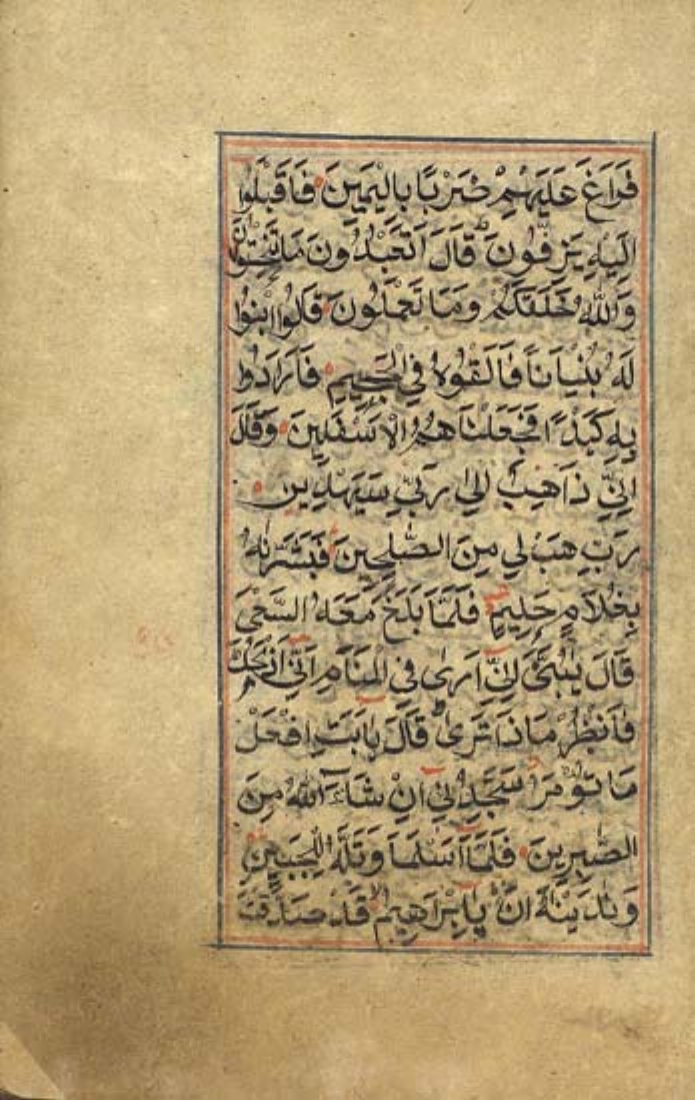 فَرَاغَ عَلَيْهِمْ ضَرْبًا بِالْيَمِينَ فَاَقْبَلُوا
اِلَيْهِ يَزِفُّونَ قَالَ اَتَعْبُدُونَ مَا تَنْحِتُونَ
وَاللّٰهُ خَلَقَكُمْ وَمَا تَعْمَلُونَ قَالُوا ابْنُوا
لَهُ بُنْيَانًا فَاَلْقُوهُ فِي الْجَحِيمِ فَاَرَادُوا
بِهِ كَيْدًا فَجَعَلْنَاهُمُ الْاَسْفَلِينَ وَقَالَ
اِنِّي ذَاهِبٌ اِلٰى رَبِّي سَيَهْدِينِ
رَبِّ هَبْ لِي مِنَ الصّٰلِحِينَ فَبَشَّرْنٰهُ
بِغُلَامٍ حَلِيمٍ فَلَمَّا بَلَغَ مَعَهُ السَّعْيَ
قَالَ يٰبُنَيَّ اِنِّي اَرٰى فِي الْمَنَامِ اَنِّي اَذْبَحُكَ
فَانْظُرْ مَاذَا تَرٰى قَالَ يَا اَبَتِ افْعَلْ
مَا تُؤْمَرُ سَتَجِدُنِي اِنْ شَاءَ اللّٰهُ مِنَ
الصّٰبِرِينَ فَلَمَّا اَسْلَمَا وَتَلَّهُ لِلْجَبِينِ
وَنَادَيْنٰهُ اَنْ يَا اِبْرَاهِيمُ قَدْ صَدَّقْتَ